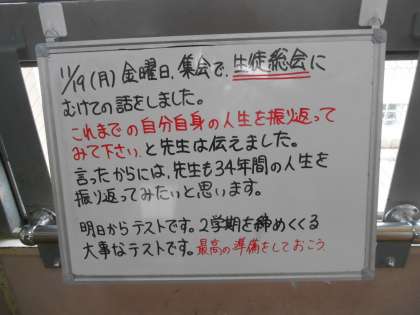 11/19(月) 金曜日、集会で、生徒総会に
むけての話をしました。
これまでの自分自身の人生を振り返って
みて下さい と先生は伝えました。
言ったからには、先生も34年間の人生を
振り返ってみたいと思います。
明日からテストです。2学期を締めくくる
大事なテストです。最高の準備をしておこう